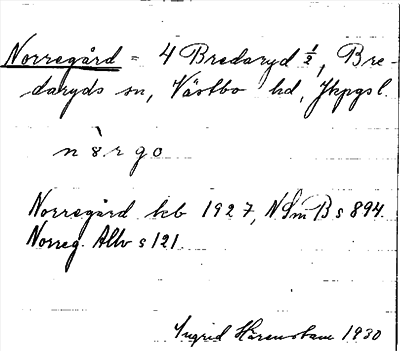 Norregård = 4 Bredaryd ½, Bre-
daryds sn, Västbo hd, Jkpgs l.
n ò r g o
Norregård kb 1927, N Sm B s 894.
Norreg. Allv s 121.
Ingrid Härenstam 1930